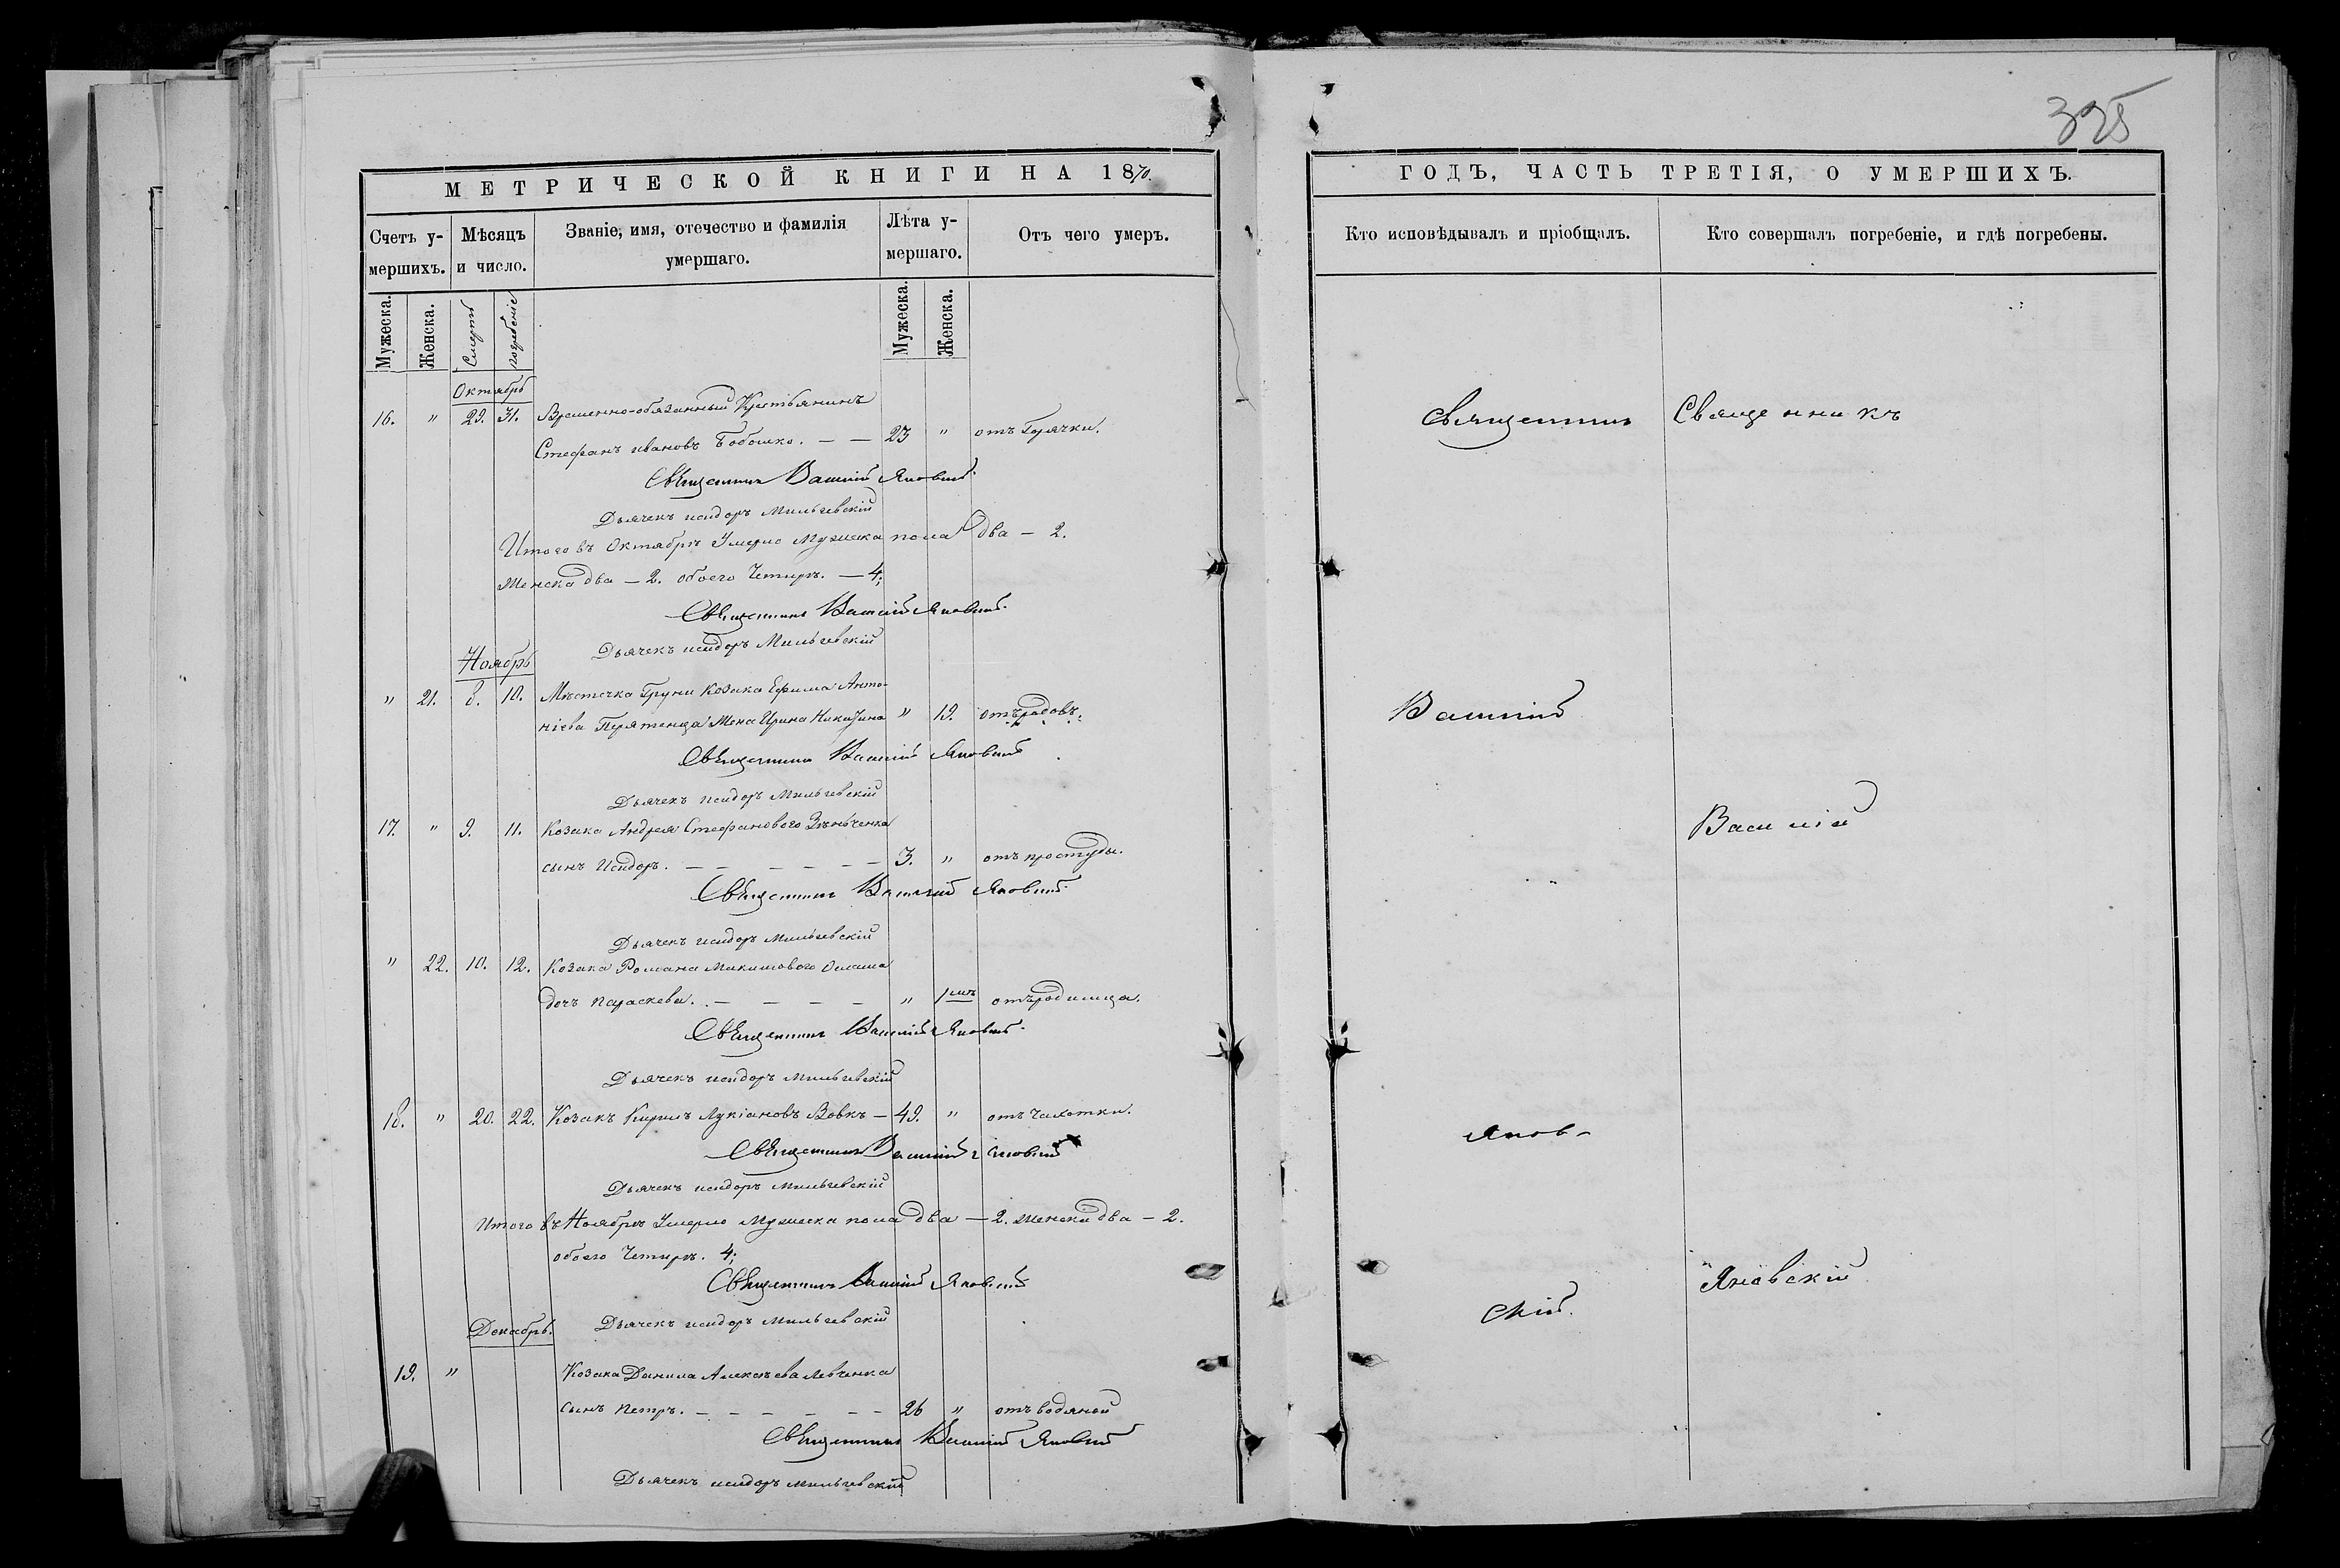 325
МЕТРИЧЕСКОЙ КНИГИ НА 1870.
Счетъ у-
мершихъ.
Мѣсяцъ
и число.
Званіе, имя, отечество и фамилія
умершаго.
Лѣта у-
мершаго.
Отъ чего умеръ.
Мужеска.
Женска.
Смерть
погребеніе
Мужеска.
Женска.
Октябрь
16. " 29. 31. Временно-обязанный Крестьянинъ
Стефанъ ивановъ Бобошко. — — 23 " отъ Горячки.
Священникъ Василій Яновскій
Дьячекъ исидоръ Мильгевскій
Итого въ Октябрѣ Умерло Мужеска пола два — 2.
Женска два — 2. обоего Четыри. — 4;
Священникъ Василій Яновскій
Дьячекъ исидоръ Мильгевскій
Ноябрь
" 21. 8. 10. Мѣстечка Груни Козака Ефима Анто-
ніева Перятенца Жена Ирина Никитина " 19. отъ родовъ.
Священникъ Василій Яновскій
Дьячекъ исидоръ Мильгевскій
17. " 9. 11. Козака Андрея Стефанового Зѣньченка
сынъ Исидоръ. — — — — — — 3. " отъ простуды.
Священникъ Василій Яновскій
Дьячекъ исидоръ Мильгевскій
" 22. 10. 12. Козака Романа Микитового
дочь параскева. — — — — " 1 отъ родимца.
Священникъ Василій Яновскій
Дьячекъ исидоръ Мильгевскій
18. " 20. 22. Козакъ Кирилъ Лукіановъ Вовкъ — 49. " отъ чахотки.
Священникъ Василій Яновскій
Дьячекъ исидоръ Мильгевскій
Итого въ Ноябрѣ Умерло Мужеска пола два — 2. женска два — 2.
обоего Четыри. 4;
Священникъ Василій Яновскій
Декабрь.
Дьячекъ исидоръ Мильгевскій
19. " Козака Данила Алексѣева Левченка
сынъ петръ. — — — — — — 26 " отъ водяной
Священникъ Василій Яновскій
Дьячекъ исидоръ мильгевскій
ГОДЪ, ЧАСТЬ ТРЕТІЯ, О УМЕРШИХЪ.
Кто исповѣдывалъ и пріобщалъ.
Кто совершалъ погребеніе, и гдѣ погребены.
Священникъ
Василій
Янов-
скій.
Священникъ
Василій
Яновскій